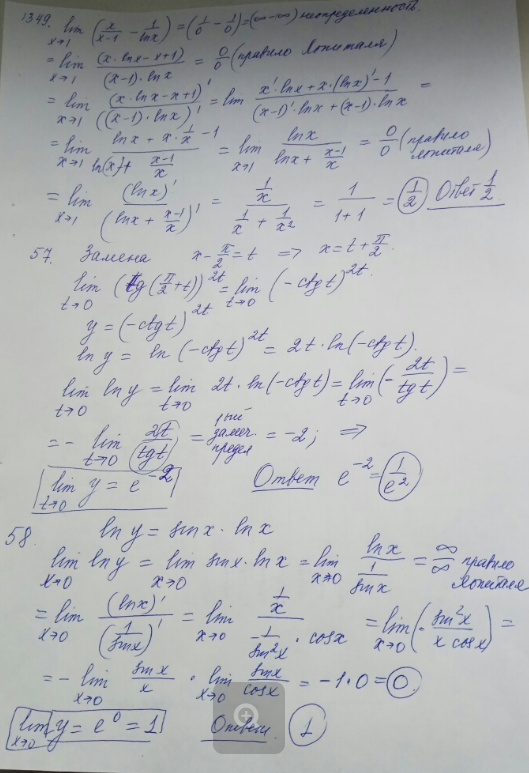 1349. lim x→1 (x/(x-1) - 1/lnx) = (1/0 - 1/0) = (∞-∞) неопределенность.
= lim x→1 (x·lnx-x+1)/((x-1)·lnx) = 0/0 (правило Лопиталя)
= lim x→1 (x·lnx-x+1)'/((x-1)·lnx)' = lim (x'·lnx+x·(lnx)'-1)/((x-1)'·lnx+(x-1)·lnx =
= lim x→1 (lnx+x·1/x-1)/(ln(x)+(x-1)/x) = lim x→1 lnx/(lnx+(x-1)/x) = 0/0 (правило Лопиталя)
= lim x→1 (lnx)'/(lnx+(x-1)/x)' = (1/x)/(1/x+1/x²) = 1/(1+1) = 1/2 Ответ 1/2
57. Замена x-π/2=t ⇒ x=t+π/2.
lim t→0 (tg(π/2+t))^2t = lim t→0 (-ctgt)^2t.
y=(-ctgt)^2t
ln y = ln(-ctgt)^2t = 2t·ln(-ctgt).
lim t→0 ln y = lim t→0 2t·ln(-ctgt) = lim t→0 (-2t/tgt) =
= - lim t→0 (2t/tgt) = 1ый замеч. предел = -2; ⇒
lim t→0 y = e^-2 Ответ e^-2 = 1/e²
58. ln y = sinx·lnx
lim x→0 ln y = lim x→0 sinx·lnx = lim x→0 lnx/(1/sinx) = ∞/∞ правило Лопиталя
= lim x→0 (lnx)'/(1/sinx)' = lim x→0 (1/x)/(-1/sin²x·cosx) = lim x→0 (-sin²x/(x cosx)) =
= - lim x→0 sinx/x · lim x→0 sinx/cosx = -1·0 = 0
lim x→0 y = e⁰ = 1 Ответ. 1